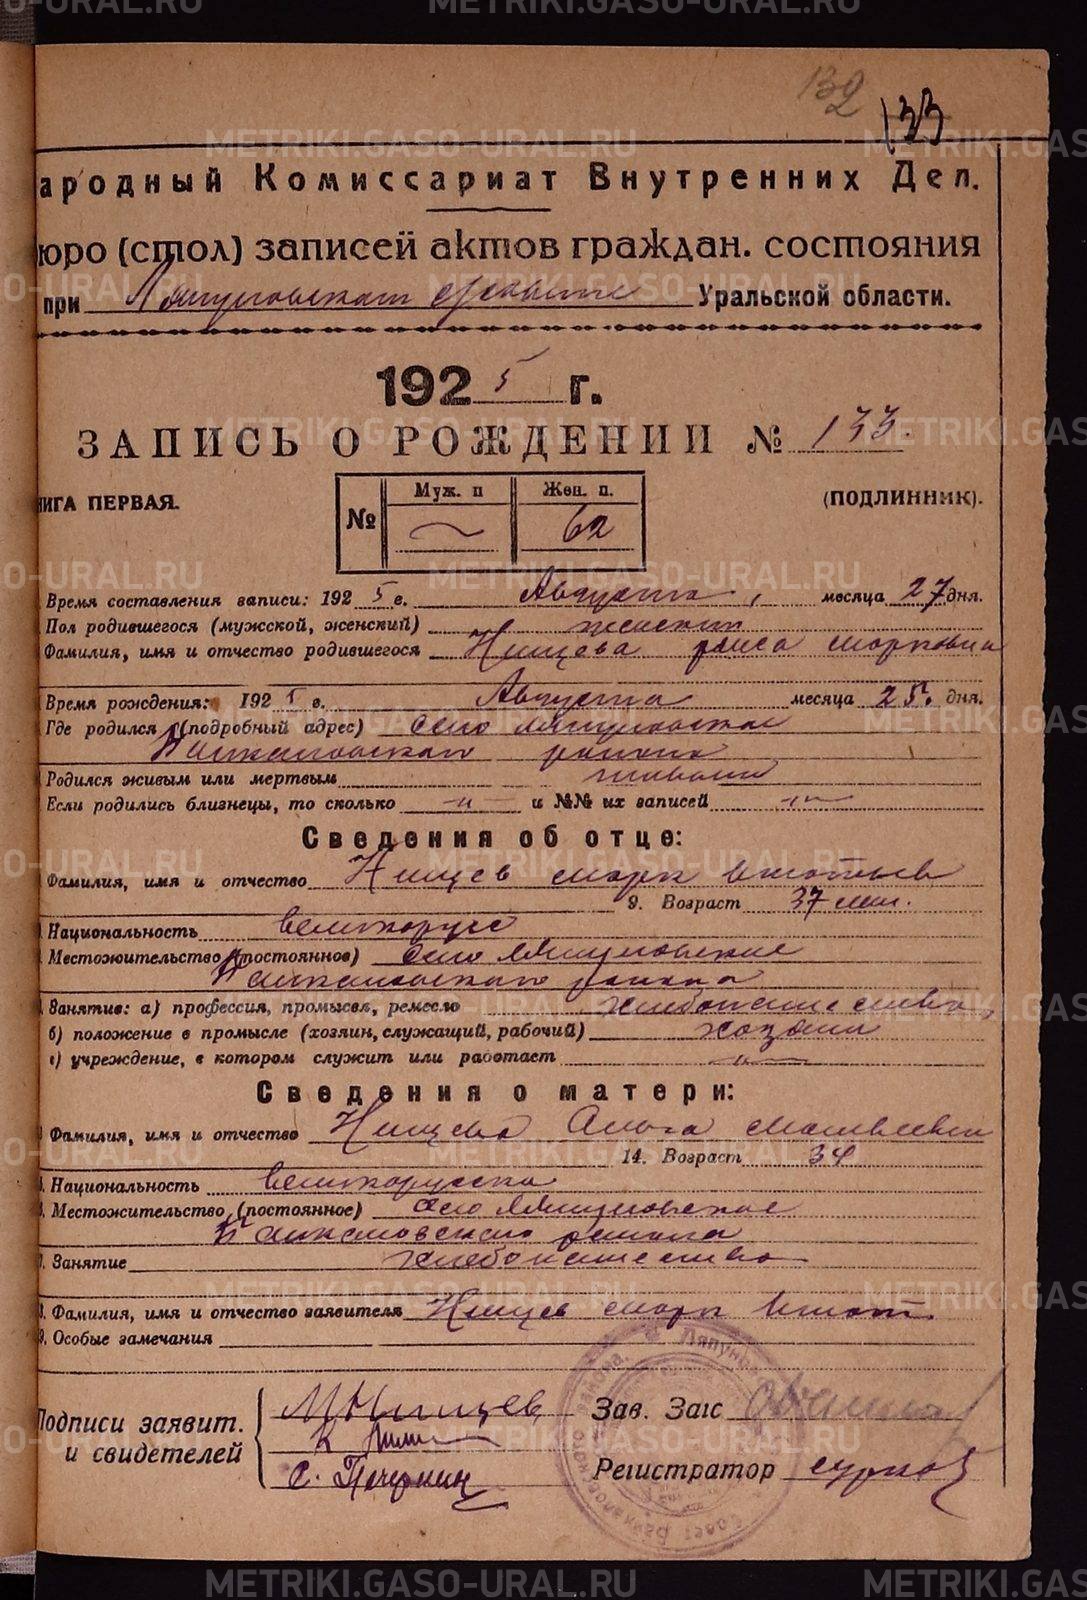 132 133
ародный Комиссариат Внутренних Дел.
юро (стол) записей актов граждан. состояния
при Ляпуновском Уральской области.
1925 г.
ЗАПИСЬ О РОЖДЕНИИ № 133.
НИГА ПЕРВАЯ. (ПОДЛИННИК).
№ Муж. п Жен. п.
62
Время составления записи: 1925 г. Августа месяца 27 дня.
Пол родившегося (мужской, женский) женский
Фамилия, имя и отчество родившегося Нищева раиса марковна
Время рождения: 1925 г. Августа месяца 25. дня.
Где родился (подробный адрес) село Ляпуновское
Байкаловского района
Родился живым или мертвым живым
Если родились близнецы, то сколько -"- и №№ их записей -"-
Сведения об отце:
Фамилия, имя и отчество Нищев марк
9. Возраст 37 лет.
Национальность великорусс
Местожительство (постоянное) село Ляпуновское
Байкаловского района
Занятие: а) профессия, промысел, ремесло хлебопашество,
б) положение в промысле (хозяин, служащий, рабочий) хозяин
в) учреждение, в котором служит или работает -"-
Сведения о матери:
Фамилия, имя и отчество Нищева
14. Возраст 34
Национальность великорусска
Местожительство (постоянное) село Ляпуновское
Байкаловского района
7. Занятие хлебопашество
8. Фамилия, имя и отчество заявителя Нищев марк
9. Особые замечания
Подписи заявит. М Нищев Зав. Загс
и свидетелей
С. Печеркин Регистратор Сурков
METRIKI.GASO-URAL.RU